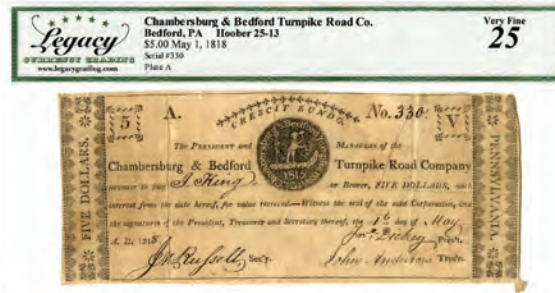 Legacy
CURRENCY GRADING
www.legacygrading.com
Chambersburg & Bedford Turnpike Road Co.
Bedford, PA Hoober 25-13
$5.00 May 1, 1818
Serial #330
Plate A
Very Fine
25
5
A.
CRESCIT EUNDO.
No. 330:
V
FIVE DOLLARS.
PENNSYLVANIA
The PRESIDENT and MANAGERS of the
Chambersburg & Bedford Turnpike Road Company
1815
promise to pay J. King or Bearer, FIVE DOLLARS, with
interest from the date hereof, for value received.—Witness the seal of the said Corporation, and
the signatures of the President, Treasurer and Secretary thereof, the 1st day of May
A. D. 1818
Jno. Dickey Pres't.
Jn Russell Sec'y.
John Anderson Treas'r.